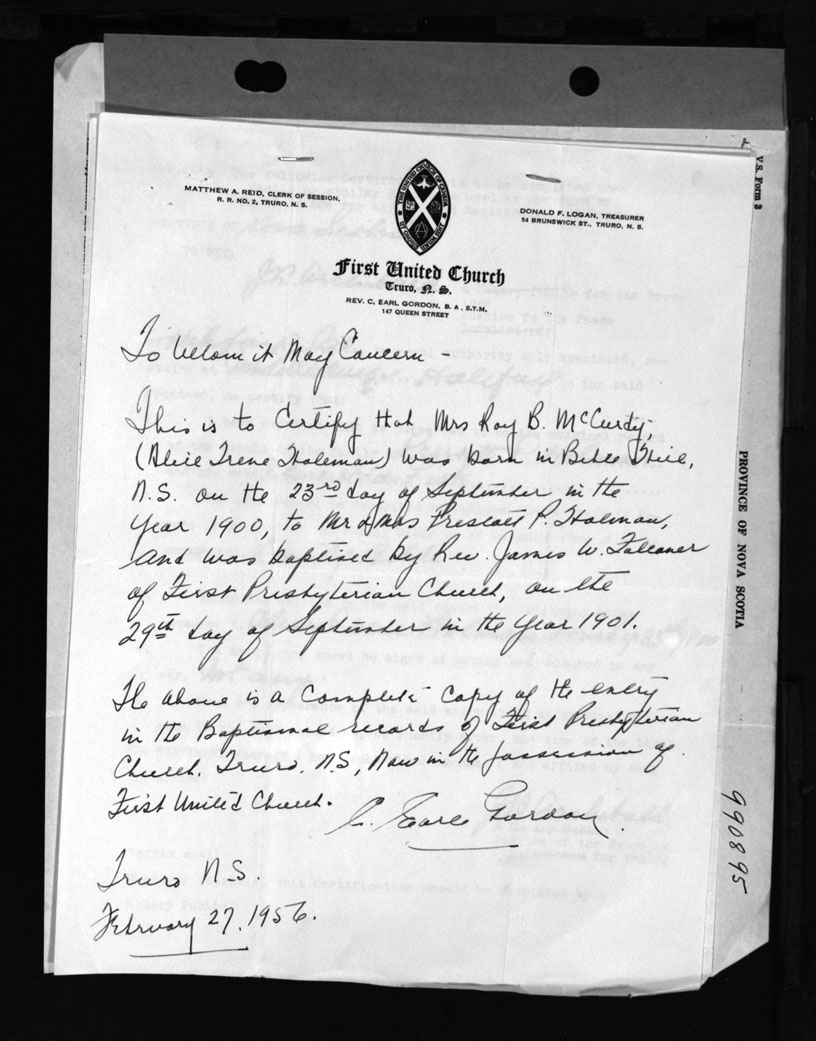 MATTHEW A. REID, CLERK OF SESSION,
R. R. NO. 2, TRURO, N. S.
DONALD F. LOGAN, TREASURER
54 BRUNSWICK ST., TRURO, N. S.
First United Church
Truro, N. S.
REV. C. EARL GORDON, B. A., S.T.M.
147 QUEEN STREET
To Whom it May Concern -
This is to Certify that Mrs Roy B. McCurdy,
(Alice Irene Holeman) was born in Bible Hill,
N.S. on the 23rd day of September in the
Year 1900, to Mr & Mrs Prescott P. Holman,
and was baptised by Rev. James W. Falconer
of First Presbyterian Church, on the
29th day of September in the Year 1901.
The above is a Complete Copy of the entry
in the Baptismal records of First Presbyterian
Church, Truro, N.S, Now in the possession of
First United Church.
C. Earle Gordon.
Truro N-S.
February 27, 1956.
V.S. Form 3
PROVINCE OF NOVA SCOTIA
990895